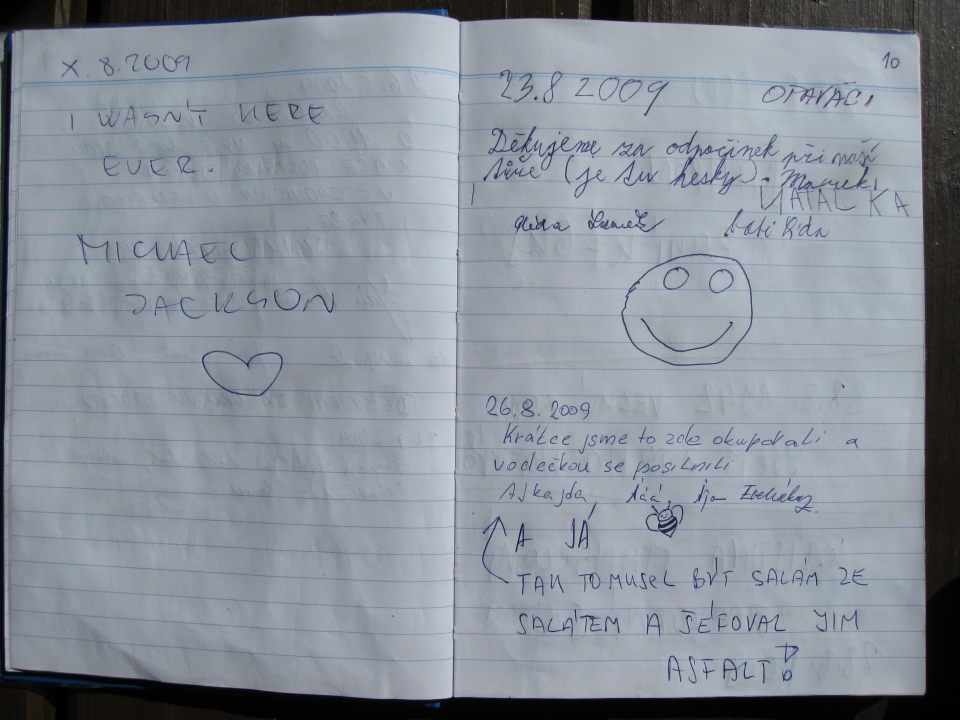 X. 8. 2009
I WASN'T HERE
EVER.
MICHAEL
JACKSON
10
23.8 2009 OPAVÁCI
Děkujeme za odpočinek při naší
túře (je tu hesky). Marek,
NATALKA
26.8.2009
Krátce jsme to zde okupovali a
vodečkou se posilnili
Ajkajda,
A JÁ
TAK TO MUSEL BÝT SALÁM ZE
SALÁTEM A ŠÉFOVAL JIM
ASFALT!